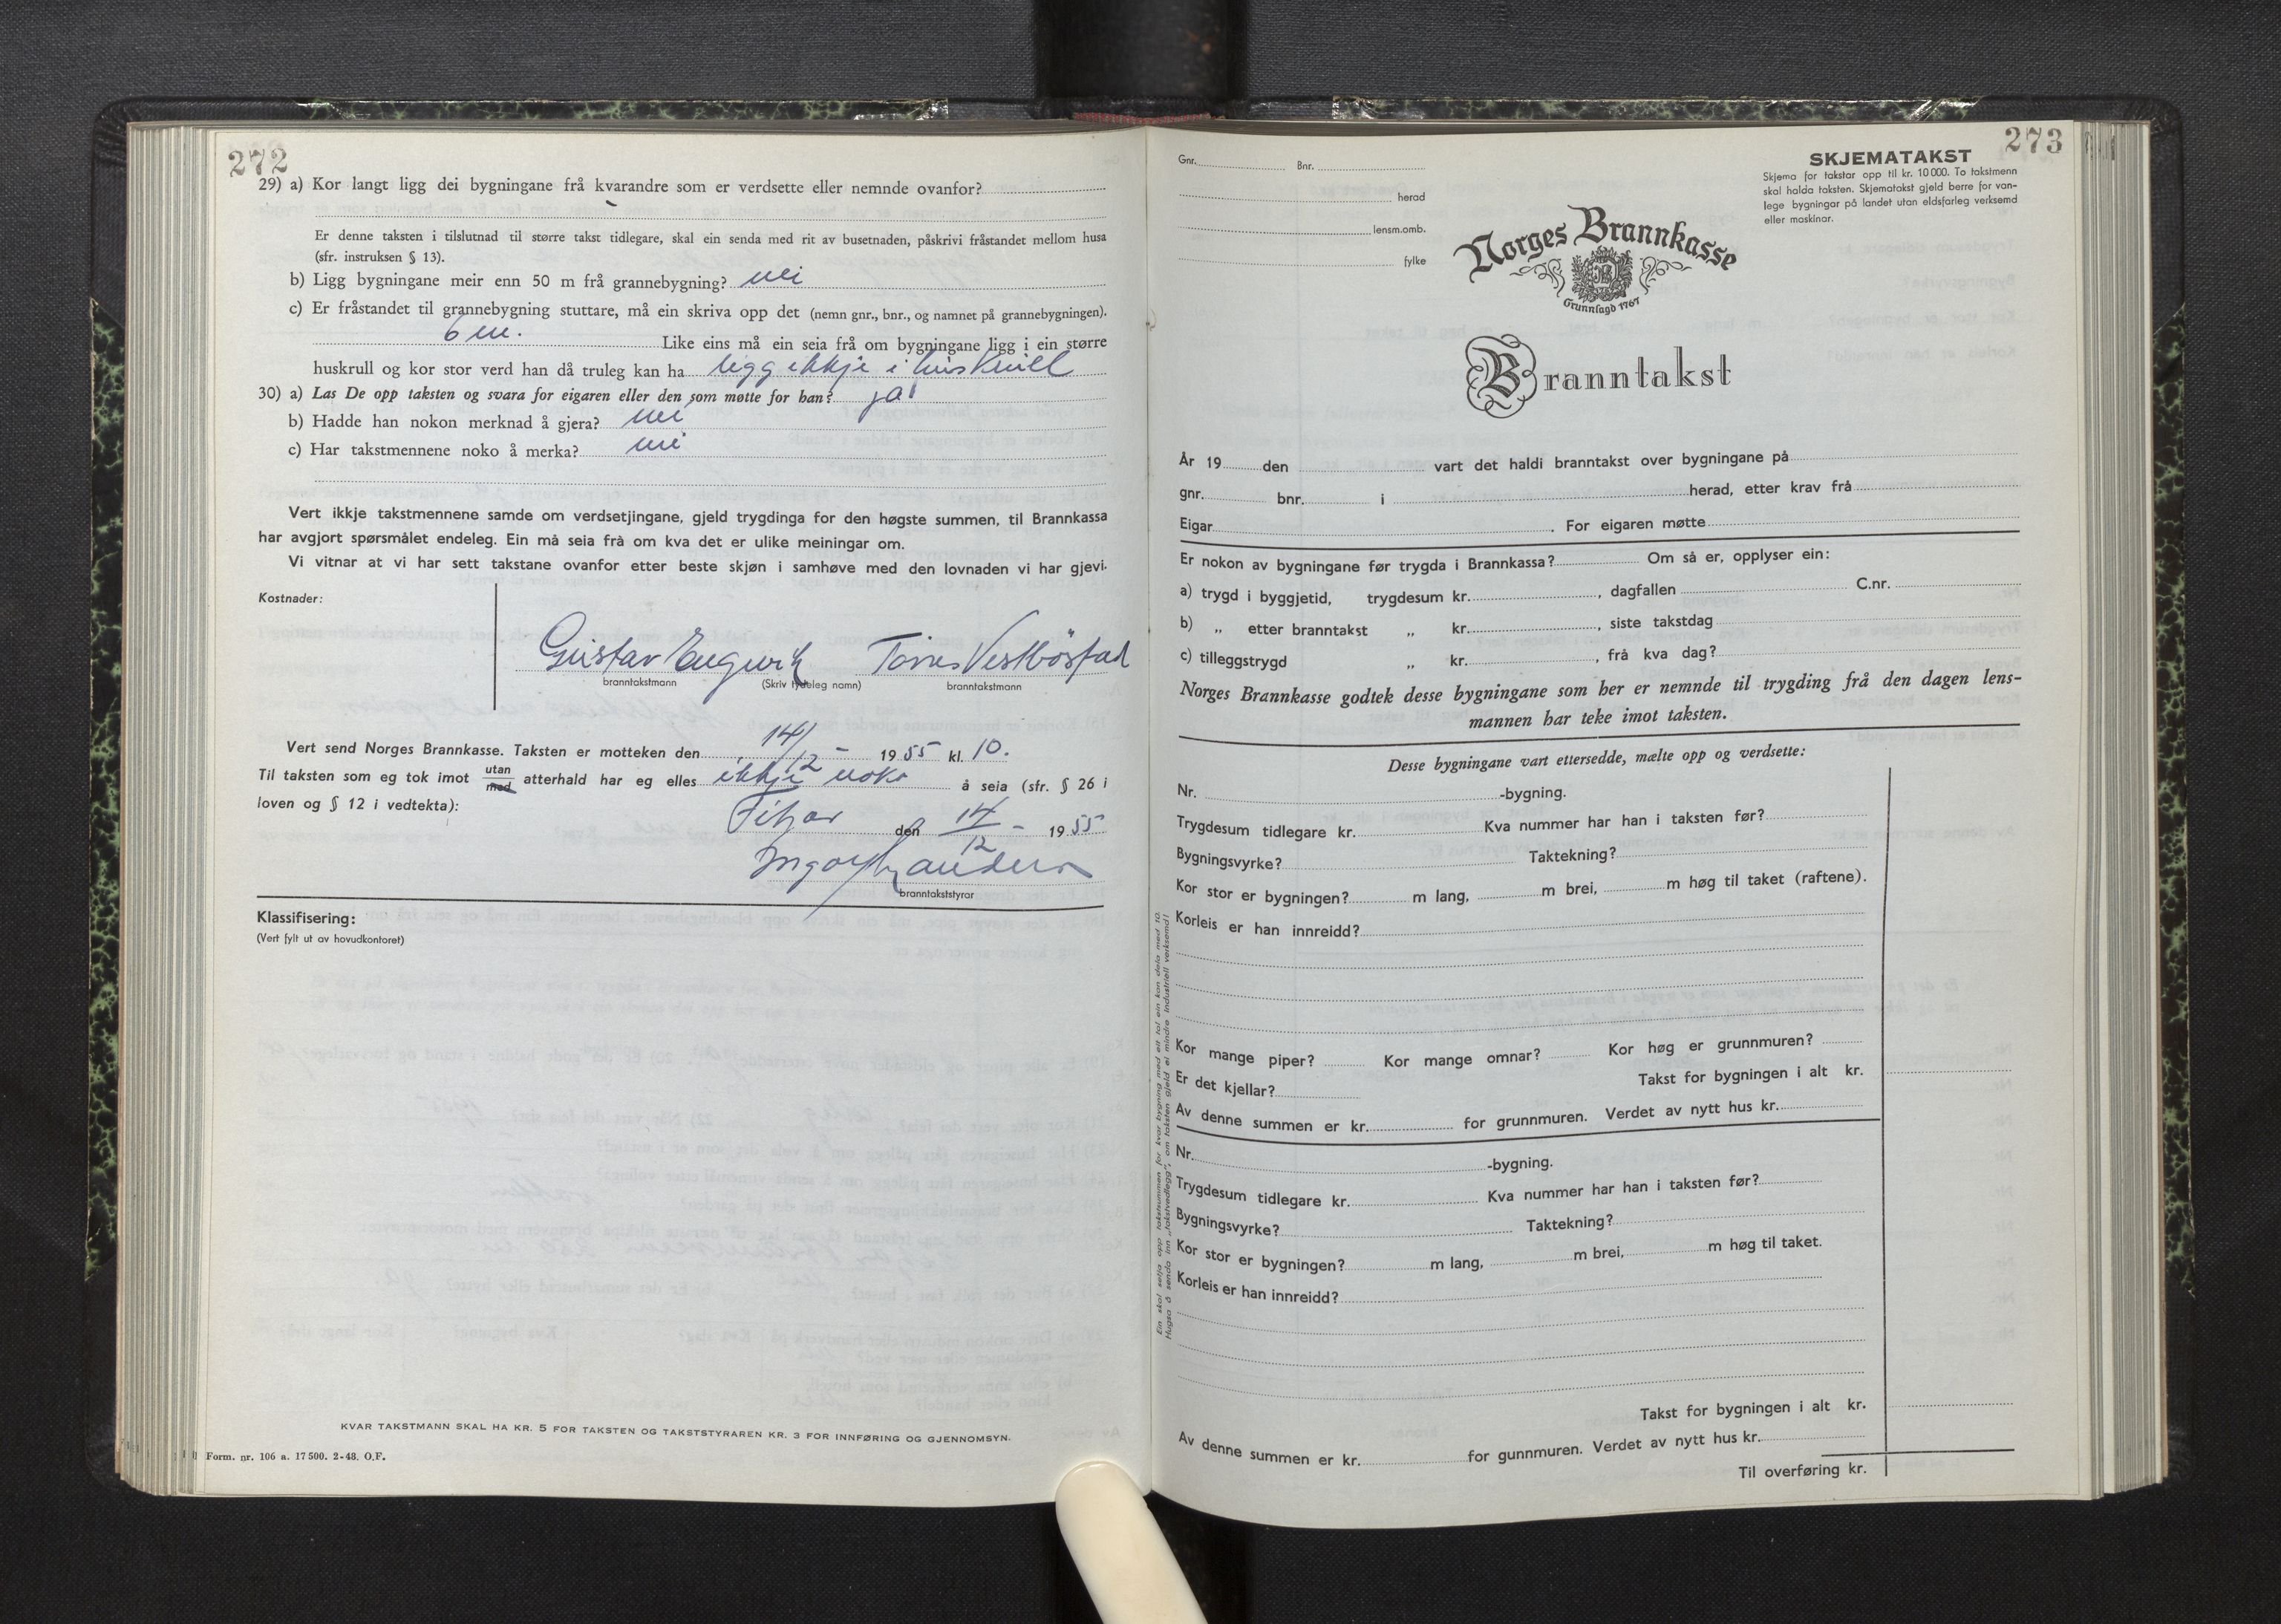 272
29) a) Kor langt ligg dei bygningane frå kvarandre som er verdsette eller nemnde ovanfor?
Er denne taksten i tilslutnad til større takst tidlegare, skal ein senda med rit av busetnaden, påskrivi fråstandet mellom husa
(sfr. instruksen § 13).
b) Ligg bygningane meir enn 50 m frå grannebygning? nei
c) Er fråstandet til grannebygning stuttare, må ein skriva opp det (nemn gnr., bnr., og namnet på grannebygningen).
6 m. Like eins må ein seia frå om bygningane ligg i ein større
huskrull og kor stor verd han då truleg kan ha ligg ikkje i huskrull
30) a) Las De opp taksten og svara for eigaren eller den som møtte for han? ja
b) Hadde han nokon merknad å gjera? nei
c) Har takstmennene noko å merka? nei
Vert ikkje takstmennene samde om verdsetjingane, gjeld trygdinga for den høgste summen, til Brannkassa
har avgjort spørsmålet endeleg. Ein må seia frå om kva det er ulike meiningar om.
Vi vitnar at vi har sett takstane ovanfor etter beste skjøn i samhøve med den lovnaden vi har gjevi.
Kostnader:
Gustav Engevik
branntakstmann (Skriv tydeleg namn) branntakstmann
Vert send Norges Brannkasse. Taksten er motteken den 14/12 - 1955 kl. 10.
Til taksten som eg tok imot utan/med atterhald har eg elles ikkje noko å seia (sfr. § 26 i
loven og § 12 i vedtekta):
Fitjar den 14/12 - 1955
branntakststyrar
Klassifisering:
(Vert fylt ut av hovudkontoret)
KVAR TAKSTMANN SKAL HA KR. 5 FOR TAKSTEN OG TAKSTSTYRAREN KR. 3 FOR INNFØRING OG GJENNOMSYN.
Form. nr. 106 a. 17500. 2-48. O.F.
273
SKJEMATAKST
Skjema for takstar opp til kr. 10 000. To takstmenn
skal halda taksten. Skjematakst gjeld berre for van-
lege bygningar på landet utan eldsfarleg verksemd
eller maskinar.
Gnr. Bnr.
herad
lensm.omb.
fylke
Norges Brannkasse
Grunnlagd 1767
Branntakst
År 19 den vart det haldi branntakst over bygningane på
gnr. bnr. i herad, etter krav frå
Eigar . For eigaren møtte
Er nokon av bygningane før trygda i Brannkassa? Om så er, opplyser ein:
a) trygd i byggjetid, trygdesum kr. , dagfallen C.nr.
b) „ etter branntakst „ kr. , siste takstdag
c) tilleggstrygd „ kr. , frå kva dag?
Norges Brannkasse godtek desse bygningane som her er nemnde til trygding frå den dagen lens-
mannen har teke imot taksten.
Desse bygningane vart ettersedde, mælte opp og verdsette:
Nr. -bygning.
Trygdesum tidlegare kr. Kva nummer har han i taksten før?
Bygningsvyrke? Taktekning?
Kor stor er bygningen? m lang, m brei, m høg til taket (raftene).
Korleis er han innreidd?
Kor mange piper? Kor mange omnar? Kor høg er grunnmuren?
Er det kjellar? Takst for bygningen i alt kr.
Av denne summen er kr. for grunnmuren. Verdet av nytt hus kr.
Nr. -bygning.
Trygdesum tidlegare kr. Kva nummer har han i taksten før?
Bygningsvyrke? Taktekning?
Kor stor er bygningen? m lang, m brei, m høg til taket.
Korleis er han innreidd?
Takst for bygningen i alt kr.
Av denne summen er kr. for gunnmuren. Verdet av nytt hus kr.
Til overføring kr.
Ein skal setja opp takstsummen for kvar bygning med eit tal ein kan dela med 10.
Hugsa å senda inn „takstvedlegg", om taksten gjeld ei mindre industriell verksemd!